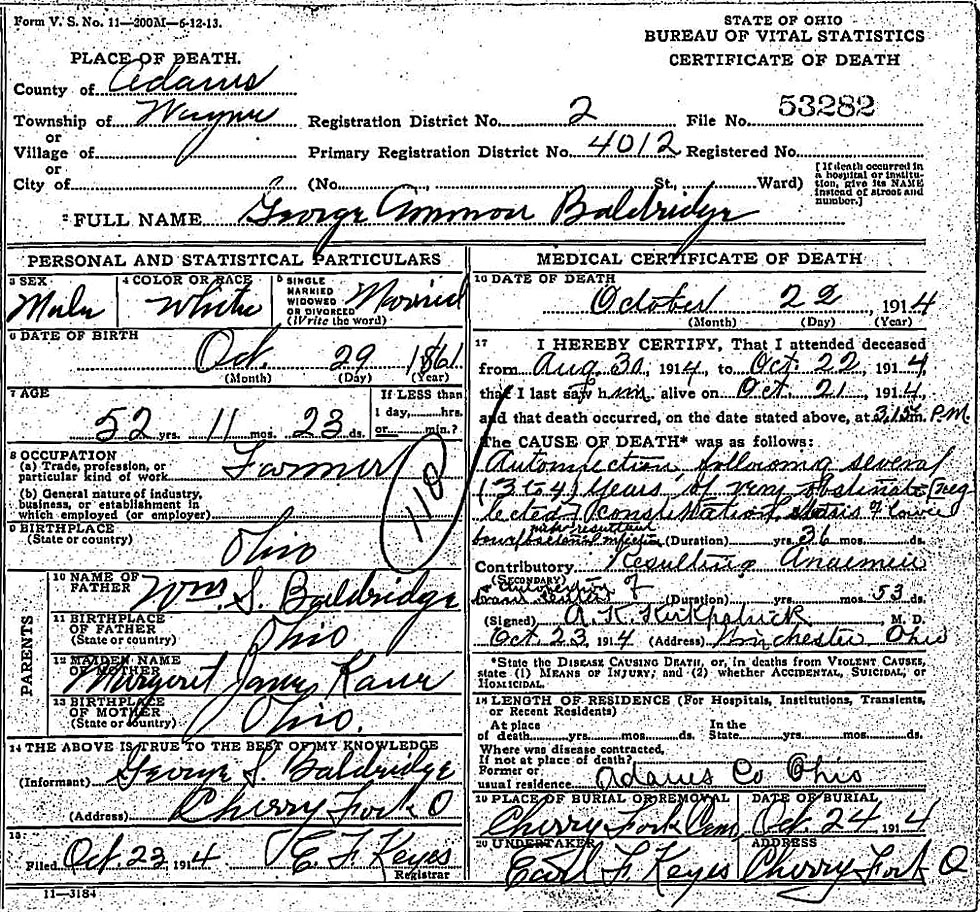 Form V. S. No. 11—200M—6-12-13.
STATE OF OHIO
BUREAU OF VITAL STATISTICS
CERTIFICATE OF DEATH
PLACE OF DEATH.
County of Adams
Township of Wayne Registration District No. 2 File No. 53282
or
Village of Primary Registration District No. 4012 Registered No.
or
City of (No. , St., Ward)
[If death occurred in
a hospital or institu-
tion, give its NAME
instead of street and
number.]
2 FULL NAME George Ammon Baldridge
PERSONAL AND STATISTICAL PARTICULARS
3 SEX
Male
4 COLOR OR RACE
White
5 SINGLE
MARRIED
WIDOWED
OR DIVORCED
(Write the word)
Married
6 DATE OF BIRTH
Oct. 29 1861
(Month) (Day) (Year)
7 AGE
52 yrs. 11 mos. 23 ds.
If LESS than
1 day, hrs.
or min.?
8 OCCUPATION
(a) Trade, profession, or
particular kind of work Farmer
(b) General nature of industry,
business, or establishment in
which employed (or employer)
118
9 BIRTHPLACE
(State or country)
Ohio
PARENTS
10 NAME OF
FATHER
Wm. S. Baldridge
11 BIRTHPLACE
OF FATHER
(State or country)
Ohio
12 MAIDEN NAME
OF MOTHER
Margaret Jane
13 BIRTHPLACE
OF MOTHER
(State or country)
Ohio.
14 THE ABOVE IS TRUE TO THE BEST OF MY KNOWLEDGE
(Informant) George S Baldridge
(Address) Cherry Fork O
15
Filed Oct. 23 1914 E. F. Keyes
Registrar
11—3184
MEDICAL CERTIFICATE OF DEATH
16 DATE OF DEATH
October 22, 1914
(Month) (Day) (Year)
17 I HEREBY CERTIFY, That I attended deceased
from Aug. 30, 1914, to Oct. 22 1914,
that I last saw him alive on Oct. 21, 1914,
and that death occurred, on the date stated above, at 3,15 m. P.M
The CAUSE OF DEATH* was as follows:
Autoinfection following several
(3 to 4) years of very obstinate [neg
lected] Constipation, Stasis of lower
bowel (Duration) yrs. 36 mos. ds.
Contributory Resulting Anaemia
(SECONDARY) of
(Duration) yrs. mos. 53 ds.
(Signed) A. K. Kirkpatrick, M. D.
Oct 23, 1914 (Address) Winchester Ohio
*State the DISEASE CAUSING DEATH, or, in deaths from VIOLENT CAUSES,
state (1) MEANS OF INJURY; and (2) whether ACCIDENTAL, SUICIDAL, or
HOMICIDAL.
18 LENGTH OF RESIDENCE (For Hospitals, Institutions, Transients,
or Recent Residents)
At place In the
of death yrs. mos. ds. State yrs. mos. ds.
Where was disease contracted,
If not at place of death?
Former or
usual residence Adams Co Ohio
19 PLACE OF BURIAL OR REMOVAL
Cherry Fork Cem
DATE OF BURIAL
Oct. 24 1914
20 UNDERTAKER
Earl F Keyes
ADDRESS
Cherry Fork O